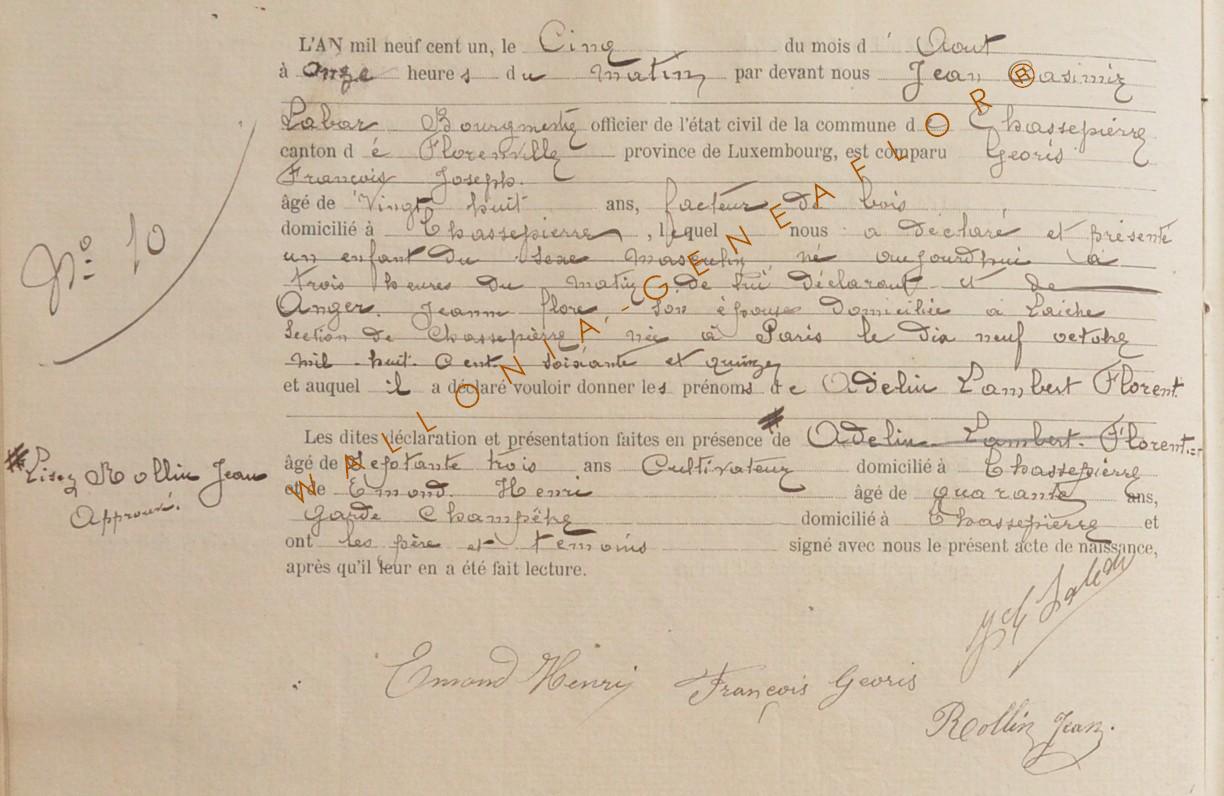 L'AN mil neuf cent un, le Cinq du mois d' Aout
à onze heures du matin par devant nous Jean Casimir
Labar Bourgmestre officier de l'état civil de la commune de Chassepierre
canton dé Florenville province de Luxembourg, est comparu Georis
François Joseph.
âgé de Vingt huit ans, facteur de bois
domicilié à Chassepierre, lequel nous a déclaré et présenté
un enfant du Sexe Masculin né aujourd'hui à
trois heures du matin de lui déclarant et de
Anger Jeanne flore son épouse domiciliée à Laiche
Section de Chassepierre née à Paris le dix neuf octobre
mil huit Cent soixante et quinze
et auquel il a déclaré vouloir donner les prénoms de Adelin Lambert Florent
Les dites déclaration et présentation faites en présence # de Adelin Lambert Florent
âgé de septante trois ans Cultivateur domicilié à Chassepierre
et de Emond. Henri âgé de quarante ans,
Garde Champêtre domicilié à Chassepierre et
ont les père et temoins signé avec nous le présent acte de naissance,
après qu'il leur en a été fait lecture.
N° 10
# Lisez Rollin Jean
Approuvé.
Emond Henri
François Georis
Rollin Jean.
WALLONIA-GENEAFLOR®